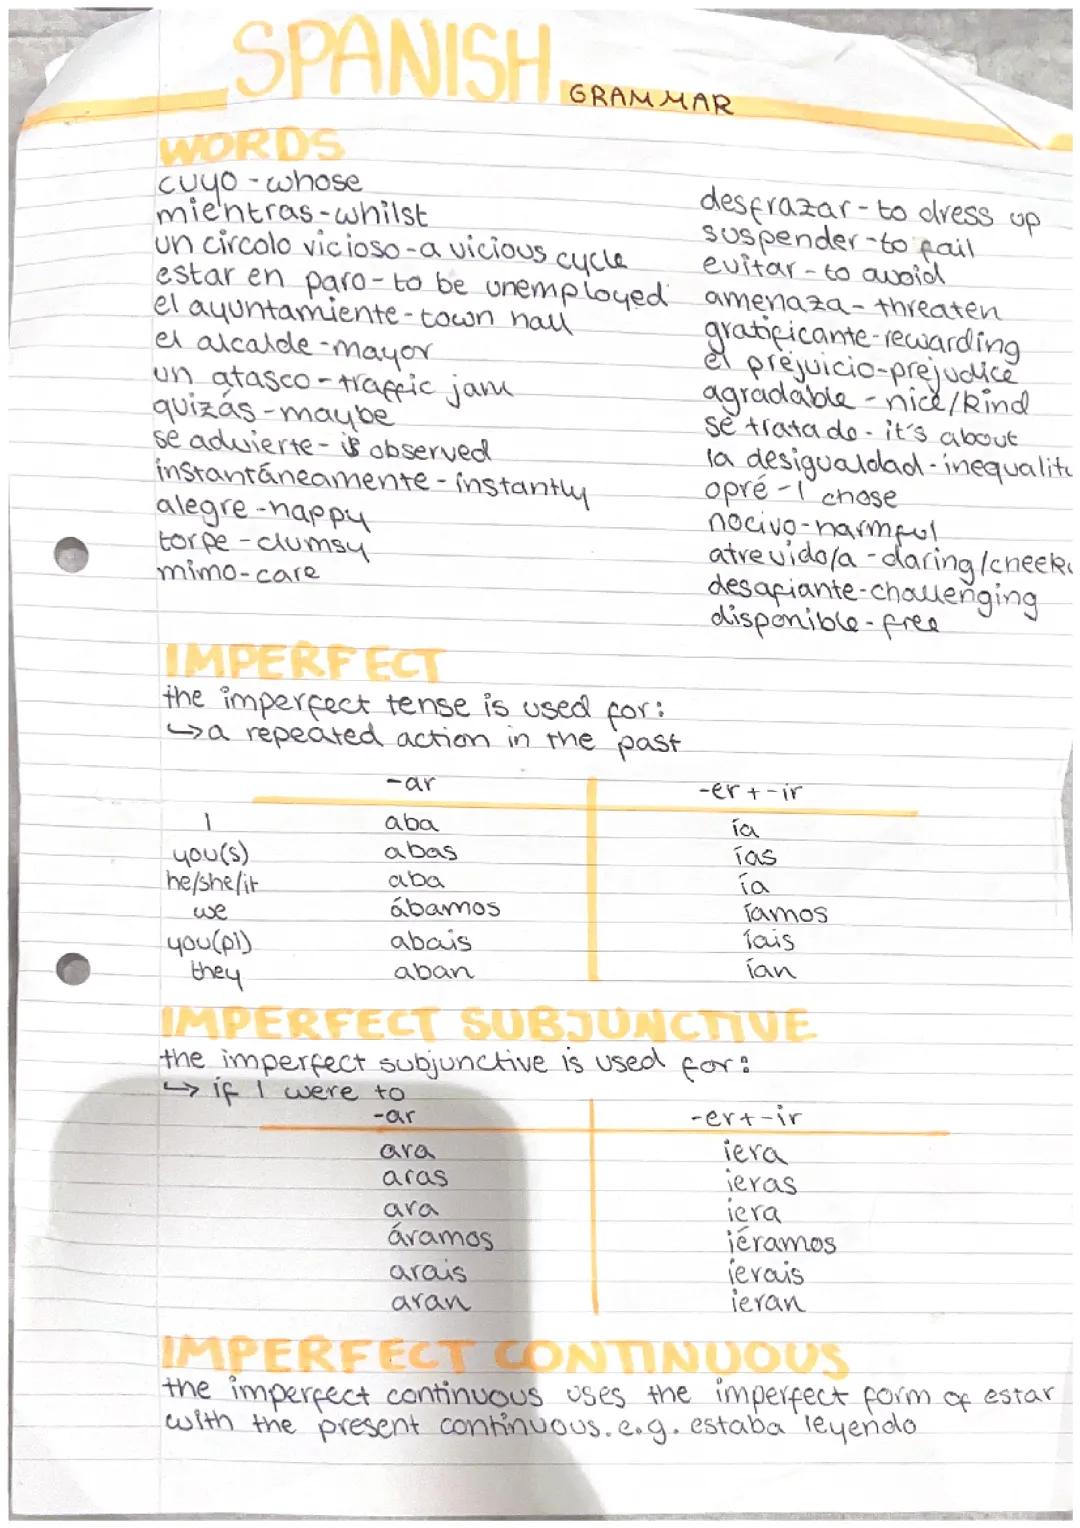 SPANISH GRAMMAR
WORDS
cuyo - whose
mientras - whilst
un circolo vicioso - a vicious cycle
estar en paro - to be unemployed
el ayuntamiente - town hall
el alcalde - mayor
un atasco - traffic jam
quizás - maybe
se advierte - is observed
instantáneamente - instantly
alegre - happy
torpe - clumsy
mimo - care
desfrazar - to dress up
suspender - to fail
evitar - to avoid
amenaza - threaten
gratificante - rewarding
el prejuicio - prejudice
agradable - nice/kind
se trata de - it's about
la desigualdad - inequalit
opré - I chose
nocivo - harmful
atrevido/a - daring/cheek
desafiante - challenging
disponible - free
IMPERFECT
the imperfect tense is used for:
↳ a repeated action in the past
-ar -er + -ir
I aba ía
you(s) abas ías
he/she/it aba ía
we ábamos íamos
you(pl) abais íais
they aban ían
IMPERFECT SUBJUNCTIVE
the imperfect subjunctive is used for:
↳ if I were to
-ar -er + -ir
ara iera
aras ieras
ara iera
áramos iéramos
arais ierais
aran ieran
IMPERFECT CONTINUOUS
the imperfect continuous uses the imperfect form of estar
with the present continuous. e.g. estaba leyendo